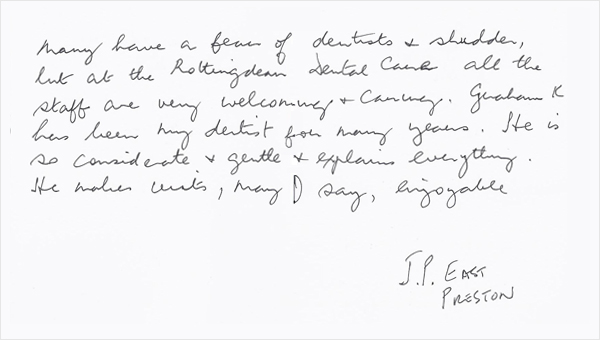 Many have a fear of dentists & shudder,
but at the Rottingdean Dental Care all the
staff are very welcoming & caring. Graham K
has been my dentist for many years. He is
so considerate & gentle & explains everything.
He makes visits, may I say, enjoyable
J.P. EAST
PRESTON